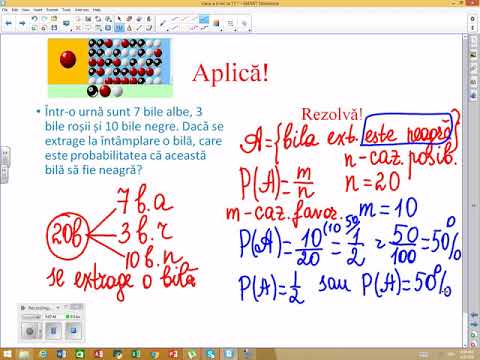 Aplică!
Într-o urnă sunt 7 bile albe, 3
bile roșii și 10 bile negre. Dacă se
extrage la întâmplare o bilă, care
este probabilitatea că această
bilă să fie neagră?
7 b.a
20b
3 b.r
10 b.n
se extrage o bilă
Rezolvă!
A={bila ext. este neagră}
n-caz. posib.
P(A)=m/n n=20
m-caz. favor. m=10
P(A)=10/20 (10 = 50) 1/2 = 50/100 = 50%
P(A)=1/2 sau P(A)=50%
Recording...